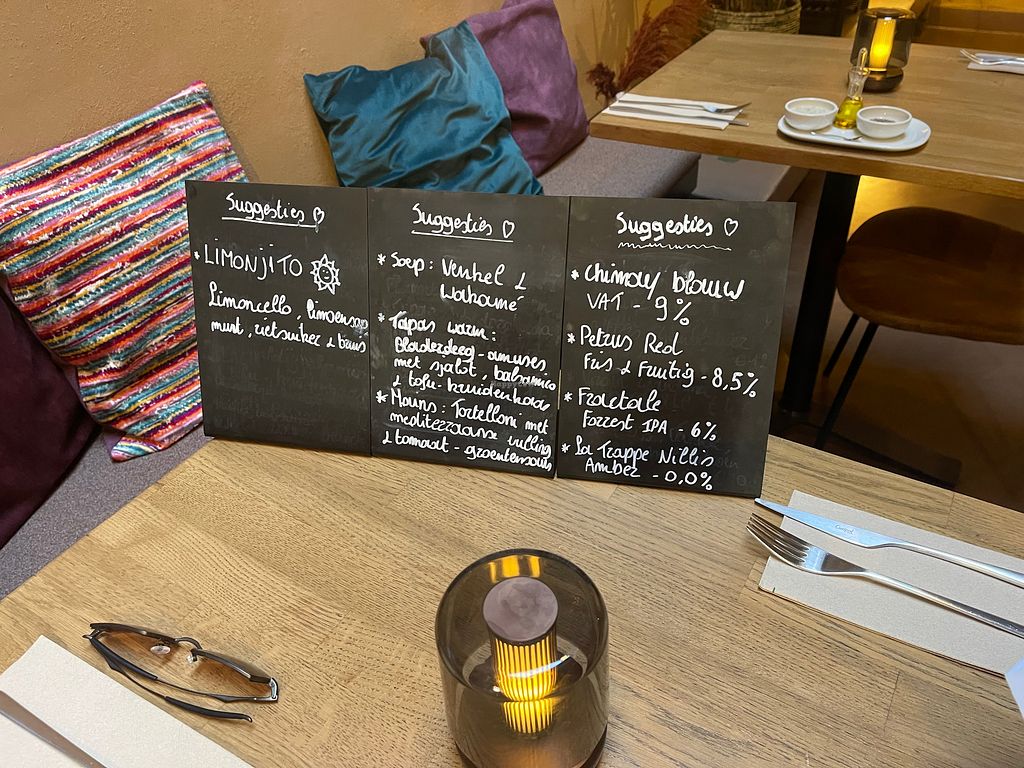 Suggesties
* LIMONJITO
Limoncello, limoensap
munt, rietsuiker & bruis
Suggesties
* Soep: Venkel &
Walnoné
* Tapas warm:
Bladerdeeg - amuses
met sjalot, balsamico
& tofu - kruidenkaas
* Mains: Tortelloni met
mediterraanse vulling
& tomaat - groentensaus
Suggesties
* Chimay blauw
VAT - 9%
* Petrus Red
Fris & Fruitig - 8,5%
* Fractale
Forrest IPA - 6%
* La Trappe Nillis
Amber - 0,0%